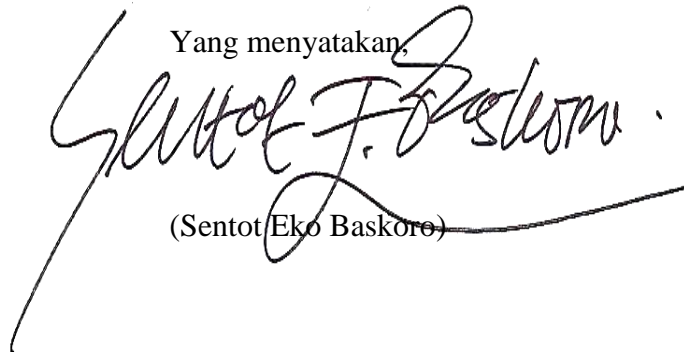 Yang menyatakan,
Sentot E. Baskoro.
(Sentot Eko Baskoro)